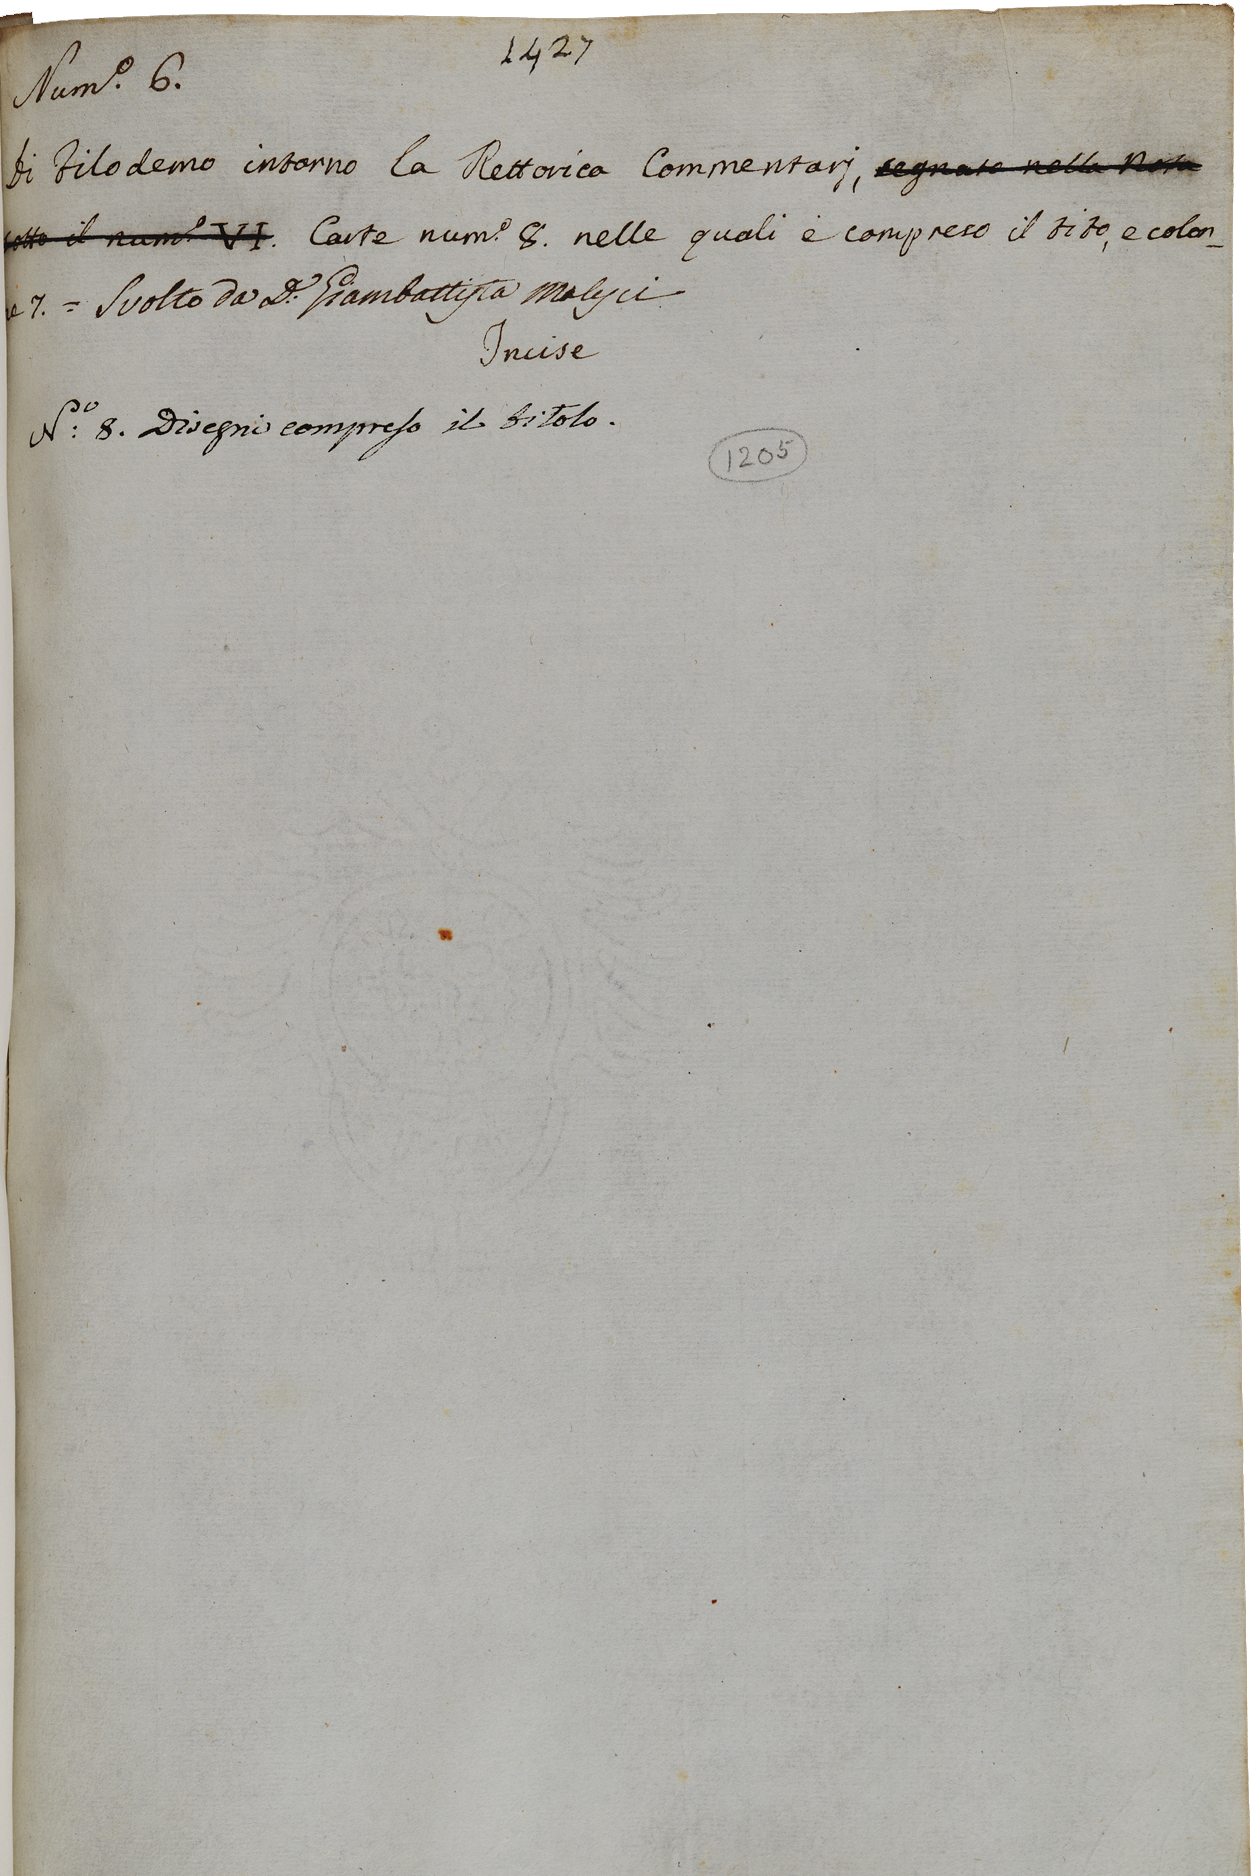 1427
Num.o 6.
Di Filodemo intorno la Rettorica Commentarj, segnato nella Nota
sotto il num.o VI. Carte num.o 8. nelle quali è compreso il tito, e colon_
ne 7. = Svolto da D. Giambattista Malesci
Incise
N.o: 8. Disegni compreso il titolo.
1205